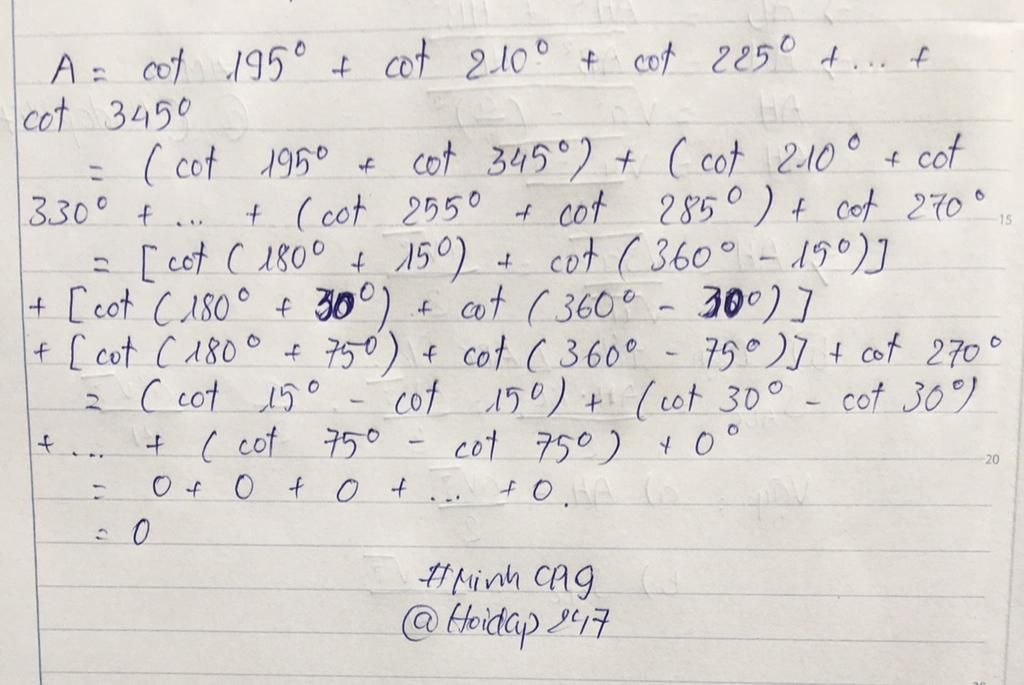 A = cot 195° + cot 210° + cot 225° + ... +
cot 345°
= (cot 195° + cot 345°) + (cot 210° + cot
330° + ... + (cot 255° + cot 285°) + cot 270°
= [cot (180° + 15°) + cot (360° - 15°)]
+ [cot (180° + 30°) + cot (360° - 30°)]
+ [cot (180° + 75°) + cot (360° - 75°)] + cot 270°
= (cot 15° - cot 15°) + (cot 30° - cot 30°)
+ ... + (cot 75° - cot 75°) + 0°
= 0 + 0 + 0 + ... + 0.
= 0
#Minh CA9
@Hoidap247
15
20